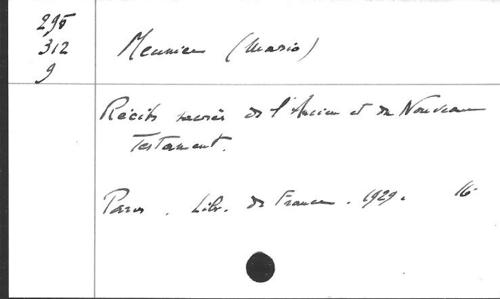 295
312
9
Meunier (Mario)
Récits sacrés de l'Ancien et du Nouveau
Testament.
Paris. Libr. de France. 1929. 16